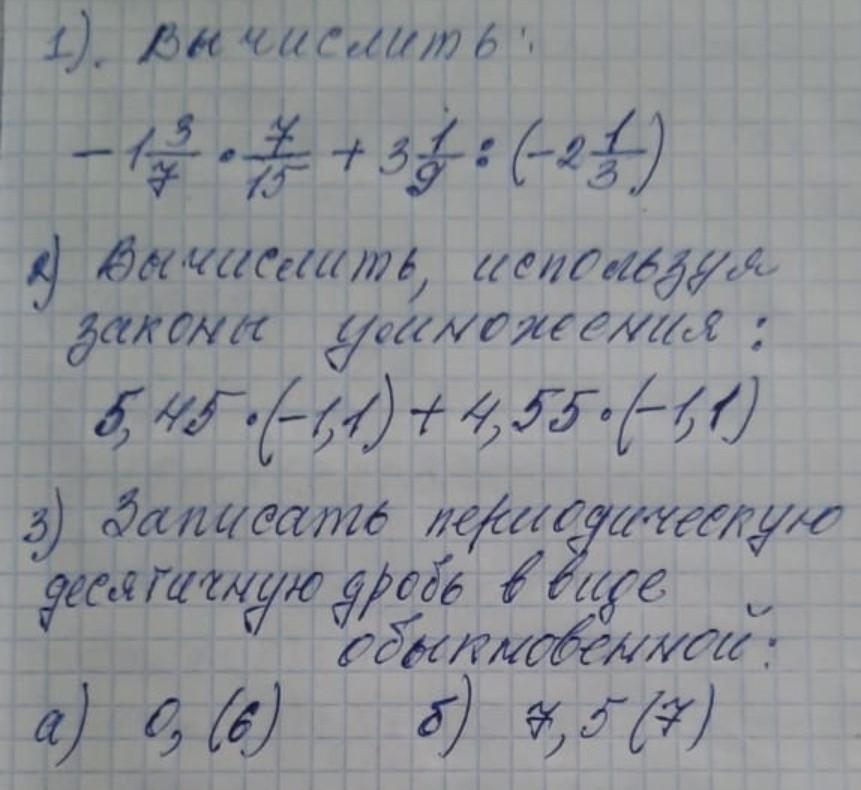 1). Вычислить:
-1 3/7 · 7/15 + 3 1/9 : (-2 1/3)
2) Вычислить, используя
законы умножения:
5,45·(-1,1)+4,55·(-1,1)
3) Записать периодическую
десятичную дробь в виде
обыкновенной:
а) 0,(6) б) 7,5(7)